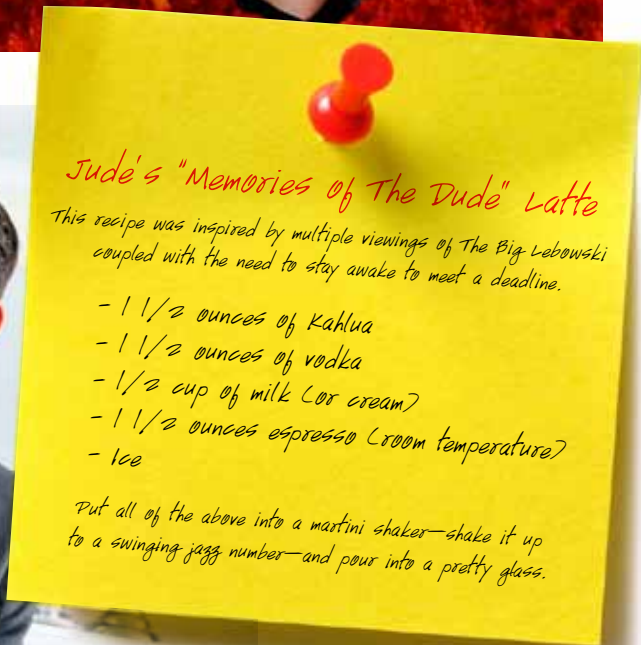 Jude's "Memories of The Dude" Latte
This recipe was inspired by multiple viewings of The Big Lebowski
coupled with the need to stay awake to meet a deadline.
- 1 1/2 ounces of Kahlua
- 1 1/2 ounces of vodka
- 1/2 cup of milk (or cream)
- 1 1/2 ounces espresso (room temperature)
- Ice
Put all of the above into a martini shaker—shake it up
to a swinging jazz number—and pour into a pretty glass.